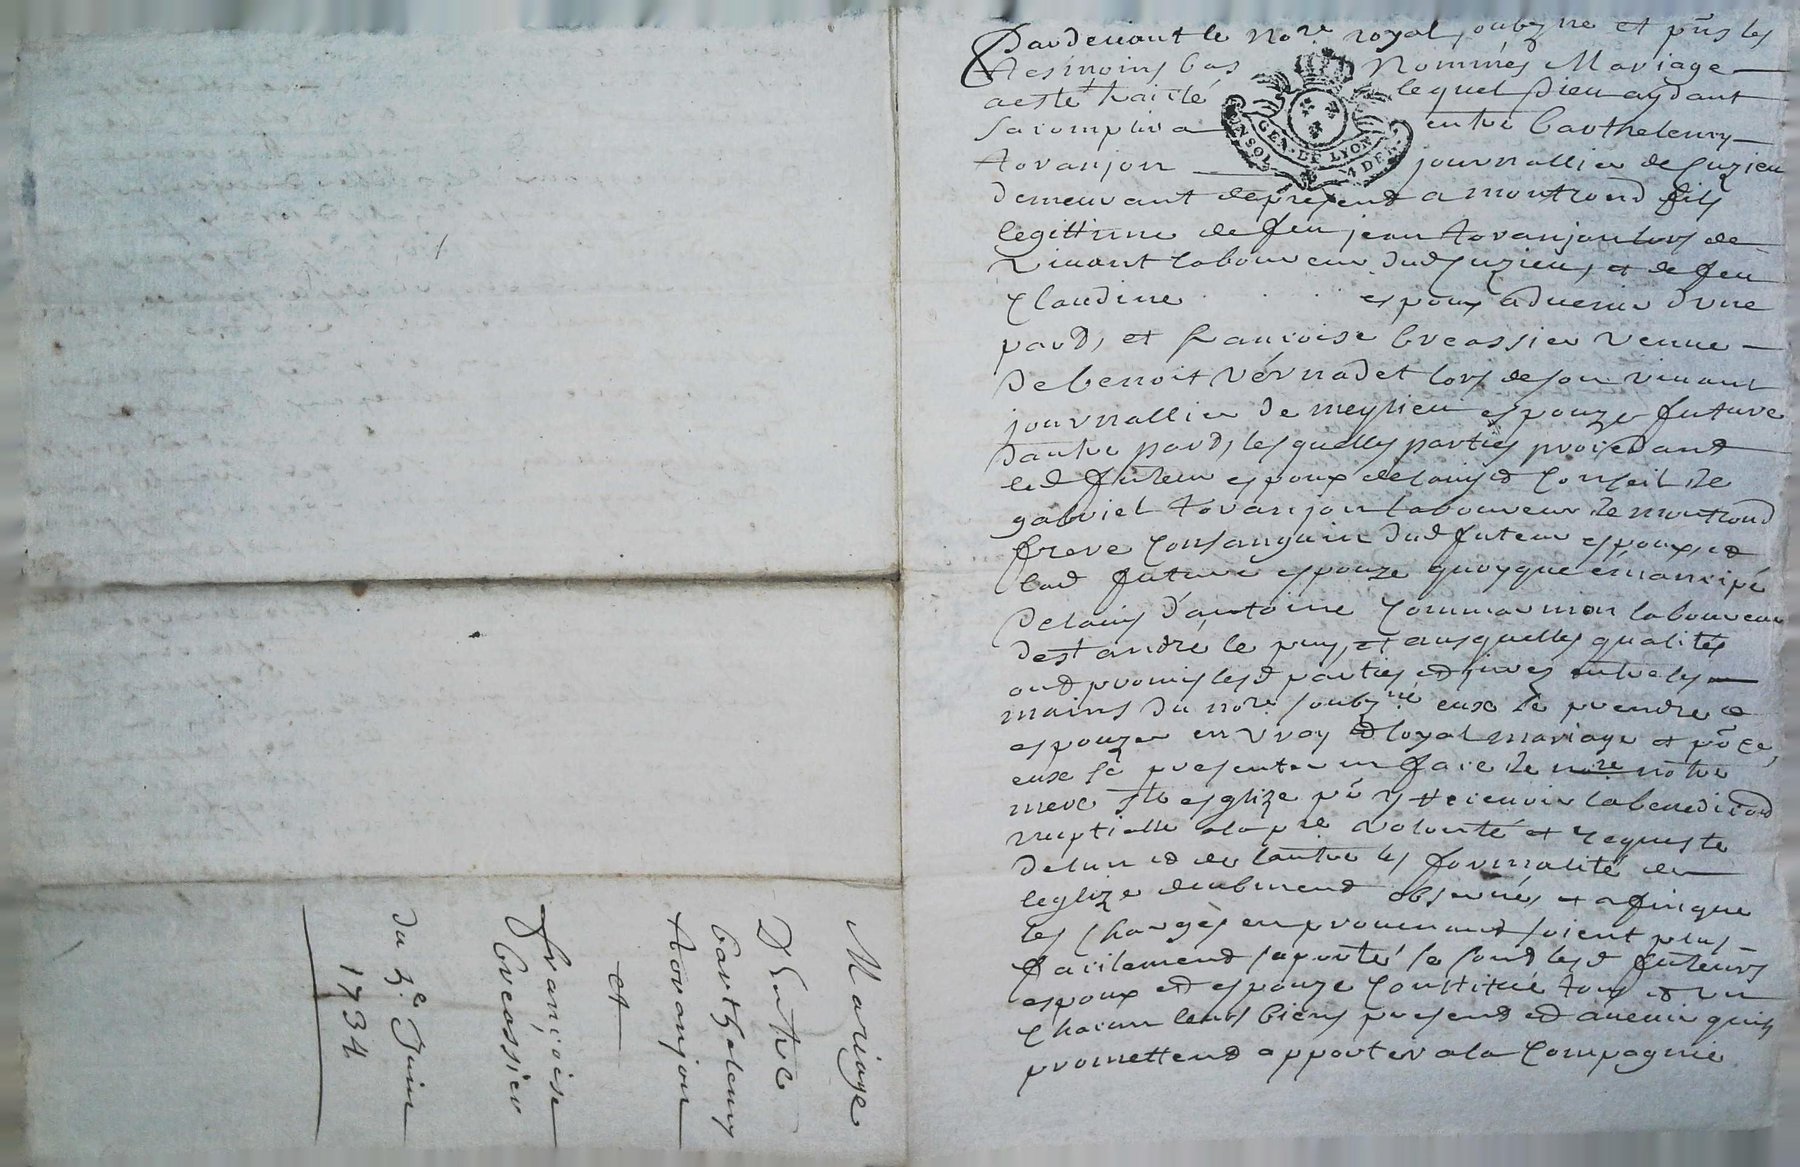 Pardevant le no.re royal soubz.ne et pñs les
tesmoins bas nommés Mariage
a esté traicté lequel Dieu aydant
sacomplira entre barthelemy
tovanjon journallier de Cuzieu
demeurant deprésend a montrond fils
legittime de feu jean tovanjon lors de
vivant laboureur dud Cuzieu, et de feu
Claudine espoux advenir dune
pard, et francoise breassier veuve
de benoit vernadet lors de son vivant
journallier de meylieu espouze future
dautre pard, lesquelles parties procedand
led futeur espoux delavis et Conseil de
gabriel tovanjon laboureur de montrond
frere Consanguin dud futeur espoux, et
lad future espouze quoyque émancipé
delavis d'antoine Commarmon laboureur
de st andré le puy, et ausquelles qualités
ont promis lesd parties et jures entre les
mains du no.re soubz.né eux se prendre et
espouzer en vray et loyal mariage et pō ce,
eux se presenter en face de n.re notre
mere ste esglize pō y recevoir la benediond
nuptialle a la p.re volonté et requeste
delun et de lautre les formalité de
leglize deubmend observées, et afin que
les Charges en provenant soient plus
facilemend suporté se sond lesd futeurs
espoux et espouze Constitué tous et un
Chacun leurs biens presend et avenir quils
promettend apporter a la Compagnie
GEN. DE LYON
Mariage
D'Entre
barthelemy
tovanjon
et
françoise
breassier
du 3.e Juin
1734